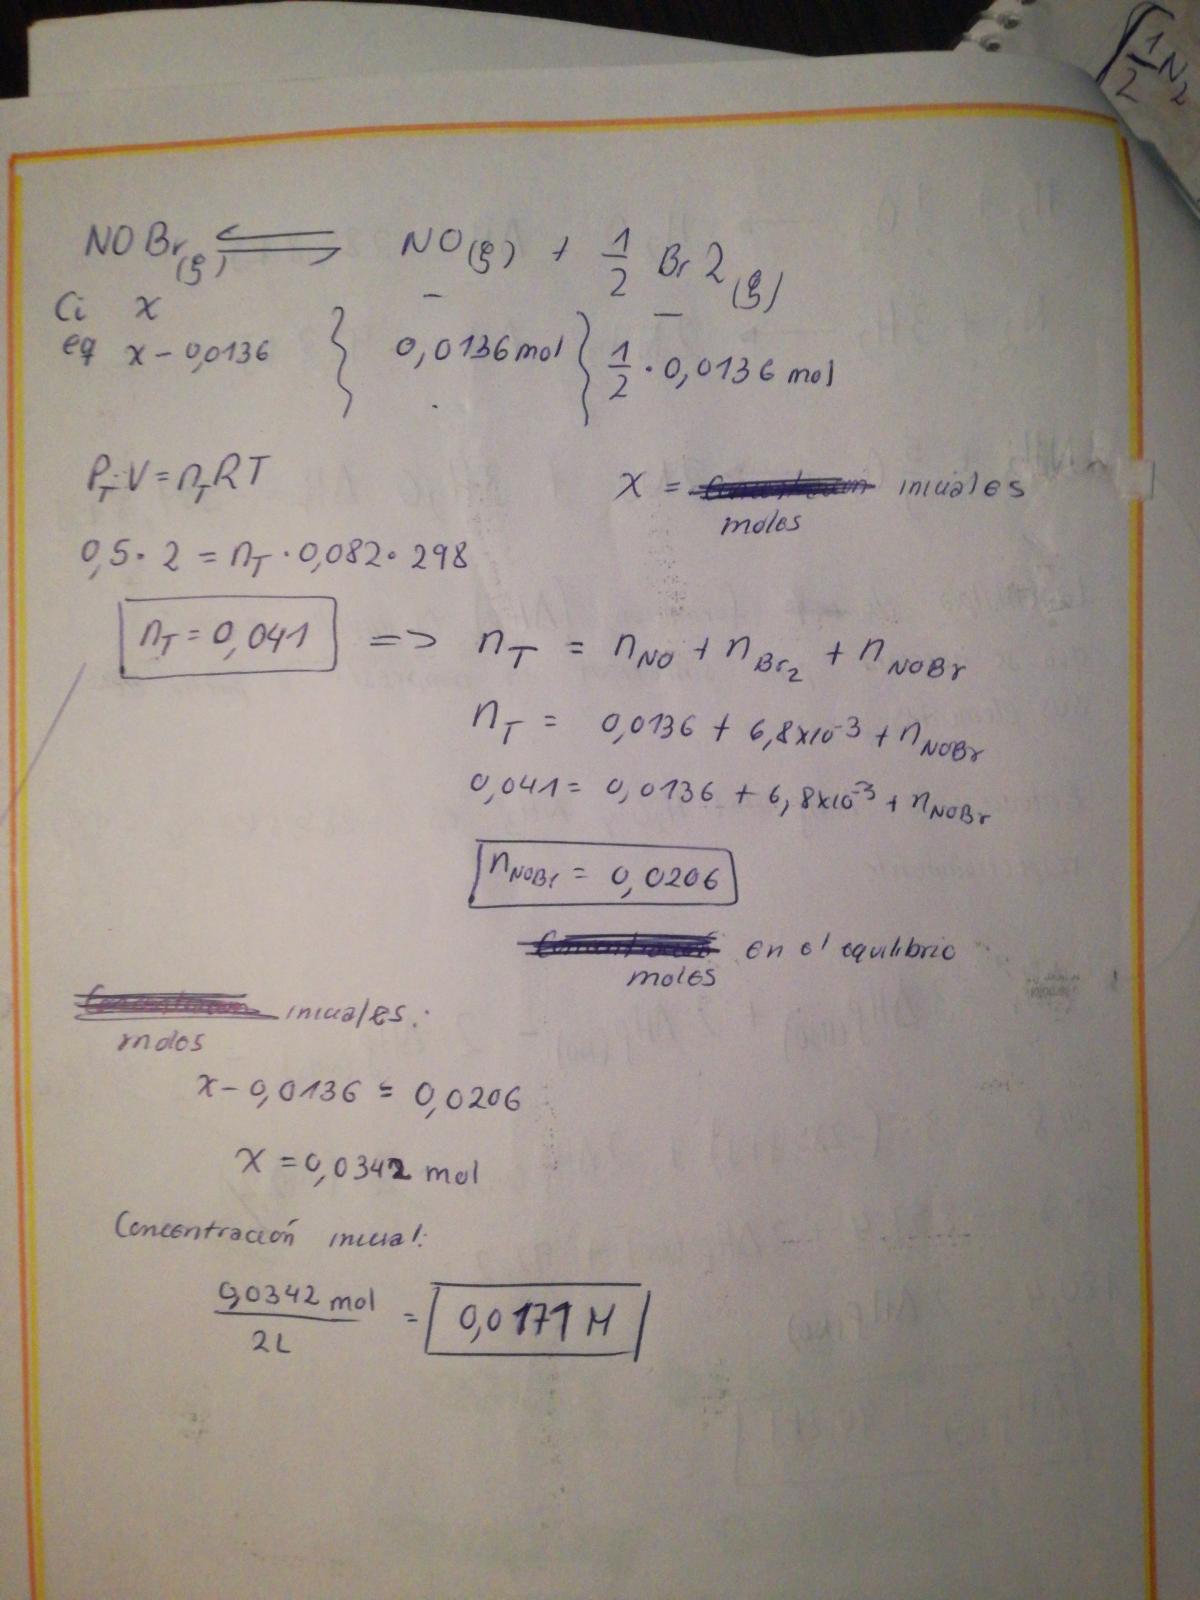 1/2 N2
NOBr(g) ⇌ NO(g) + 1/2 Br2(g)
Ci x – –
eq x - 0,0136 } 0,0136 mol } 1/2 · 0,0136 mol
PT·V = nT RT
x = iniciales
moles
0,5 · 2 = nT · 0,082 · 298
nT = 0,041 => nT = nNO + nBr2 + nNOBr
nT = 0,0136 + 6,8x10^-3 + nNOBr
0,041 = 0,0136 + 6,8x10^-3 + nNOBr
nNOBr = 0,0206
en el equilibrio
moles
iniciales:
moles
x - 0,0136 = 0,0206
x = 0,0342 mol
Concentración inicial:
0,0342 mol / 2L = 0,0171 M